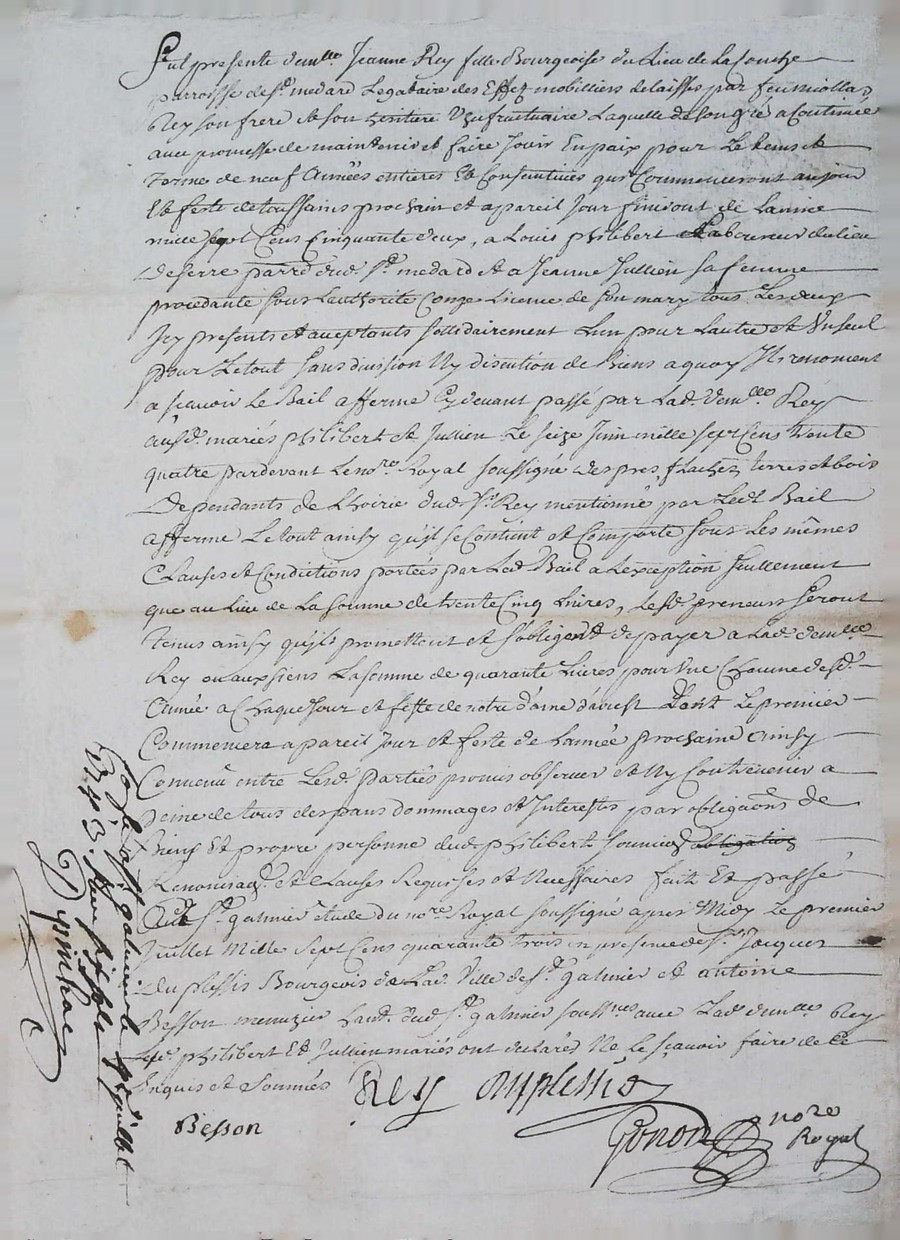 Fut presente demlle Jeanne Rey fille Bourgeoise du Lieu de Lasouche
parroisse de St medard Legataire des Effez mobilliers delaissés par feu
Rey son frere et son heritiere Usufruituaire Laquelle de son gré a Continué
avec promesse de maintenir et faire Jouir En paix pour Le tems et
Terme de neuf Années entieres Et Consecutives qui Commenceront au jour
Et feste de toussains prochain et a pareil Jour finiront de Lannée
mille sept Cens Cinquante deux, a Louis philibert Laboureur du lieu
de serre parre dud. St medard et a Jeanne Jullien sa femme
procedante sous Lauthorité Congé Licence de son mary tous Les deux
Jcy presents et aceptants sollidairement Lun pour Lautre et Un seul
pour Le tout sans division Ny discution de Biens a quoy Ils renoncent
a scavoir Le Bail a fferme Cy devant passé par Lad. demlle Rey
ausd. mariés philibert et Jullien Le seize Juin mille sept Cens trente
quatre pardevant Le nore Royal soussigné des pres terres et bois
Dependants de Lhoirie dud. Sr Rey mentionné par Ledt Bail
afferme Le tout ainsy quil se Contient et Comporte sous Les mêmes
Clauses et Conditions portées par Led. Bail a Lexception seullement
que au Lieu de La somme de trente Cinq Livres, lesd. preneurs seront
tenus ainsy quils promettent et sobligent de payer a Lad. demlle
Rey ou aux siens La somme de quarante Livres pour Une Chacune desd.
Année a Chaque Jour et feste de notre dame d'aoust Dont Le premier
Commencera a pareil Jour et feste de Lannée prochaine Ainsy
Convenu entre Lesd. parties promis observer et Ny Contrevenir a
peine de tous despans dommages et Interests par obligaons de
Biens Et propre personne dud. philibert soumions obligation
Renonciaon et Clauses Requises et Necessaires fait Et passé
Aud. St galmier étude du nore Royal soussigné apres Midy Le premier
Juillet Mille Sept Cens quarante trois en presence de Sr Jacques
Duplessis Bourgeois de Lad. Ville de St galmier et antoine
Besson menuzier habt. dud. St galmier sousnes avec Lad. demlle Rey
Led. philibert Et Jullien mariés ont declarés Ne Le scavoir faire de ce
Enquis et Sommés
Rey Duplessis
Besson
Gonon nore
Royal
Con.lé a St galmier le Juillet
1743.